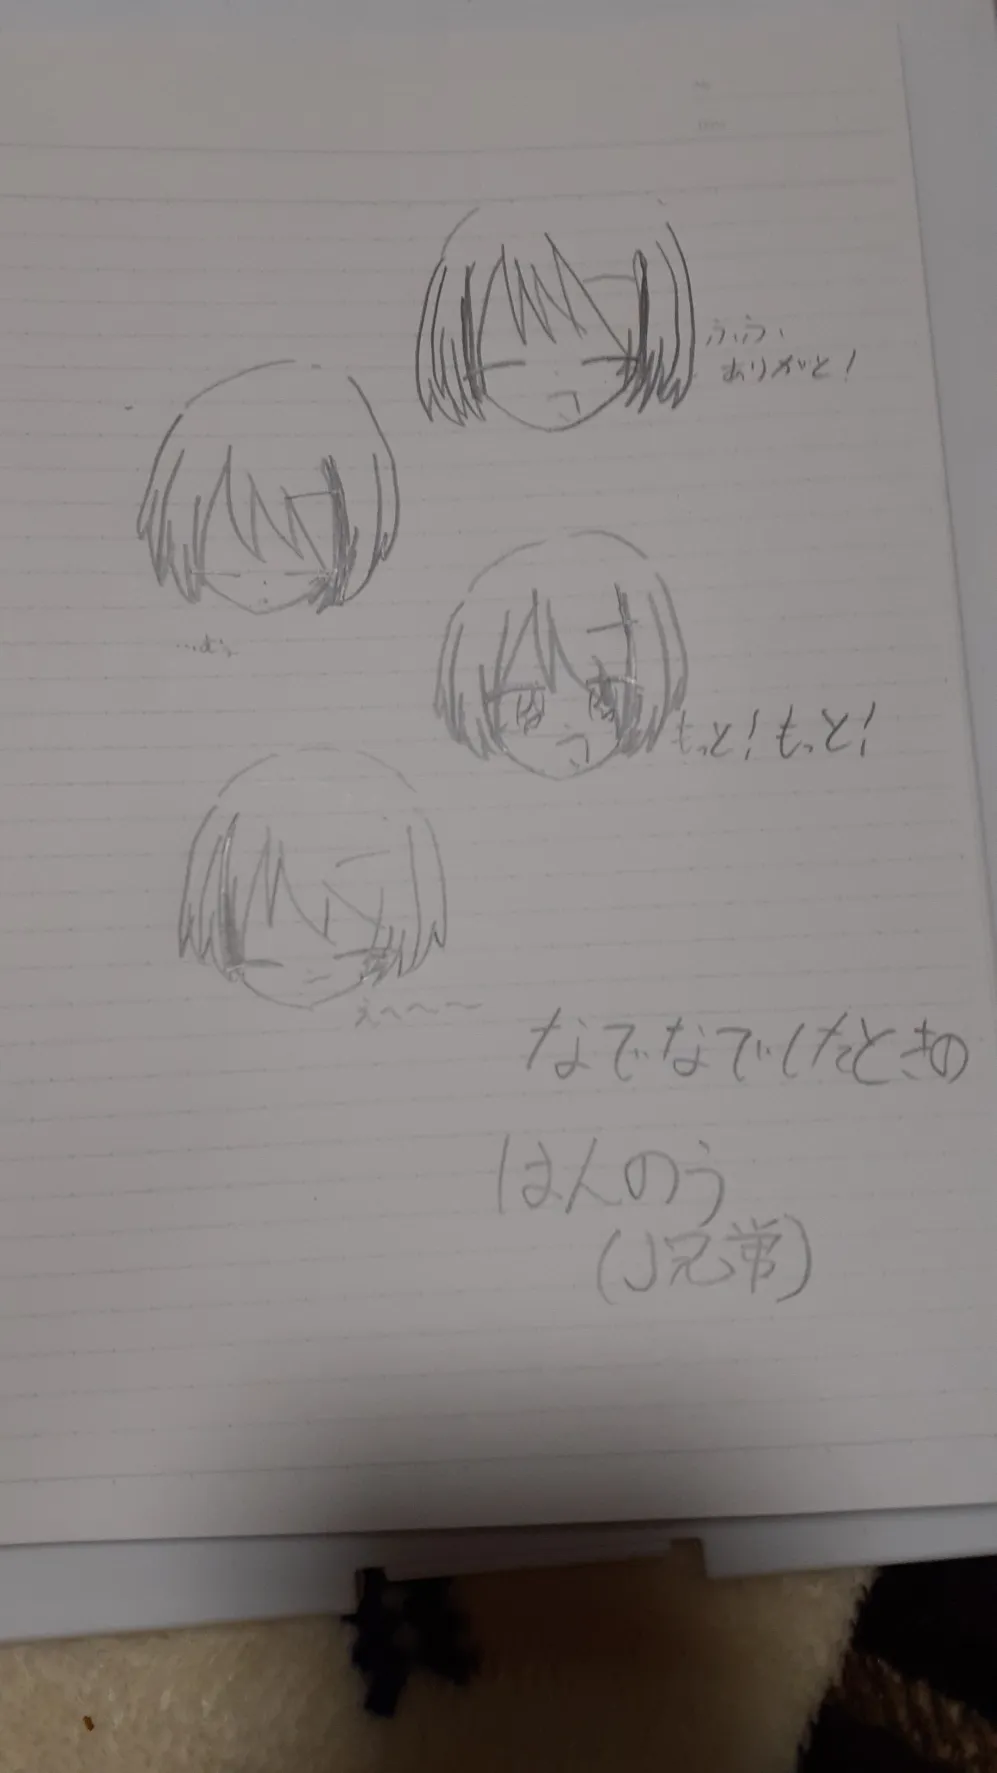 ふふ、
ありがと!
…む
もっと!もっと!
えへ〜〜〜
なでなでしたときの
はんのう
(J兄常)